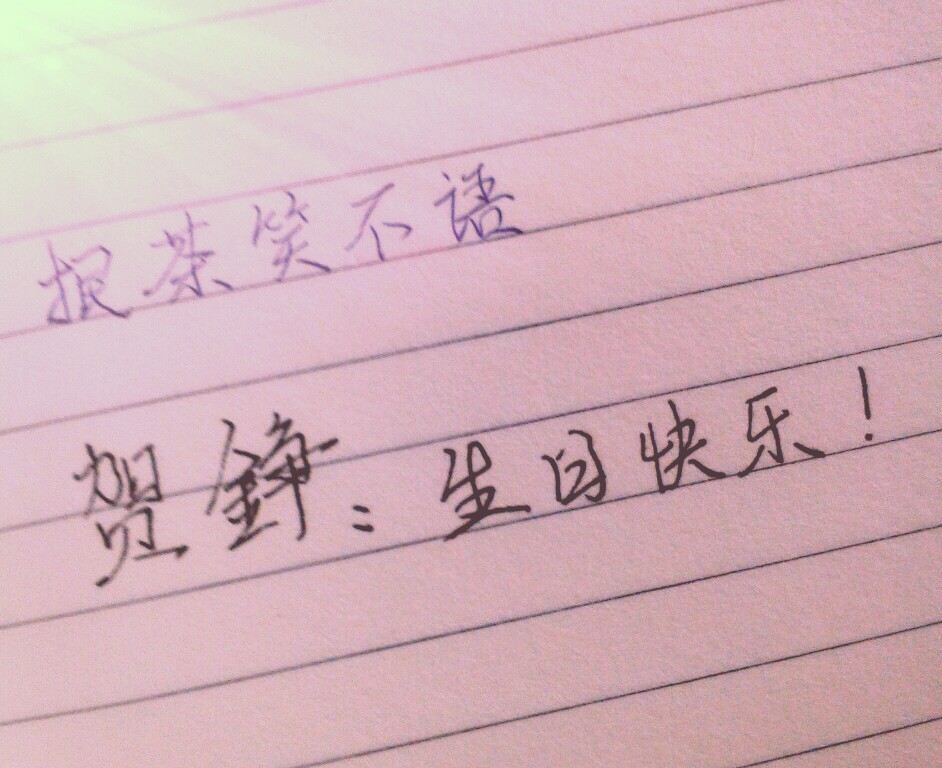 抿茶笑不语
贺錚：生日快乐！